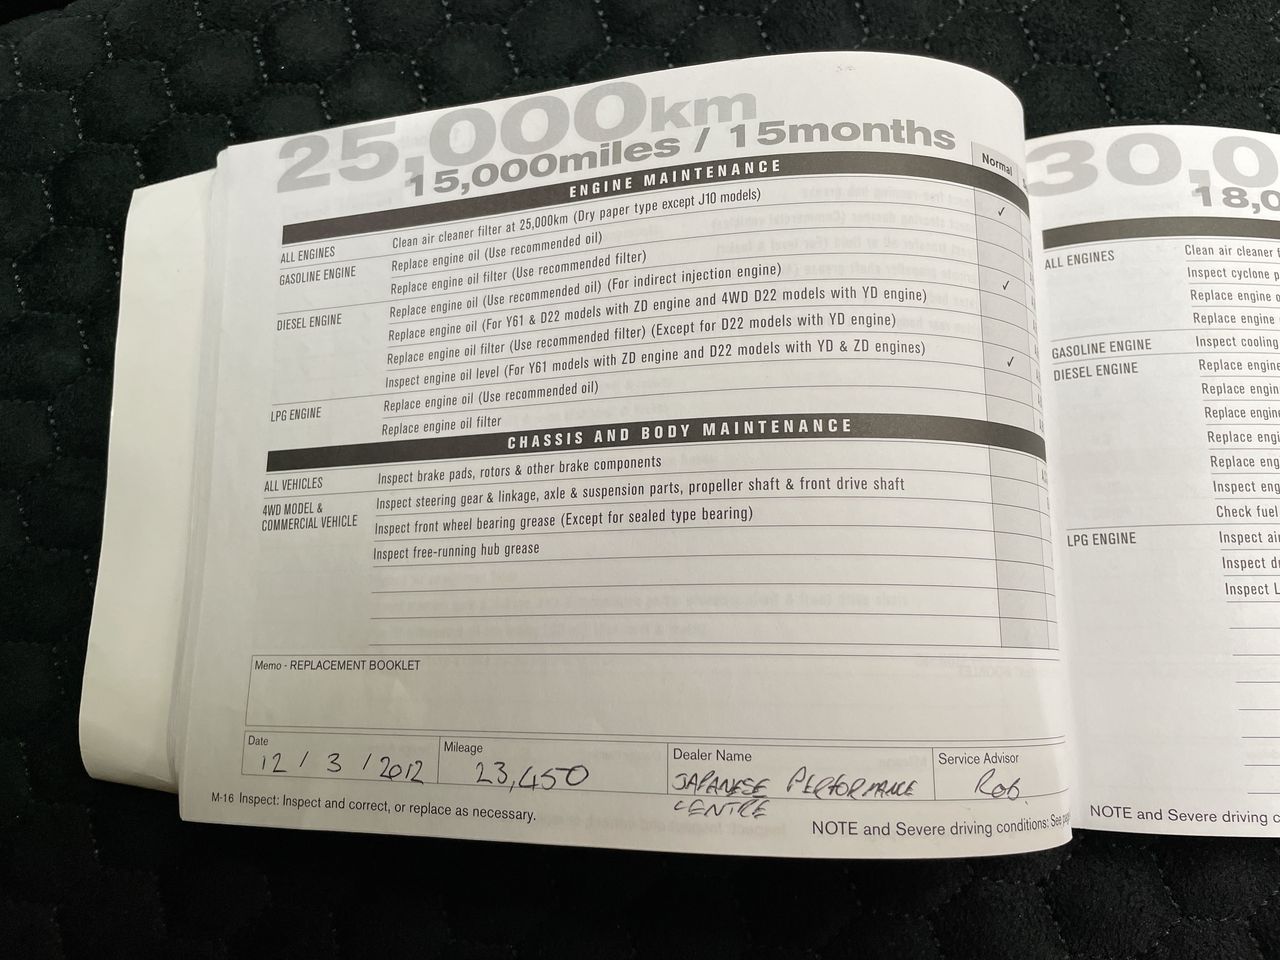 25,000km
15,000miles / 15months
ENGINE MAINTENANCE
Normal
ALL ENGINES
Clean air cleaner filter at 25,000km (Dry paper type except J10 models)
✓
GASOLINE ENGINE
Replace engine oil (Use recommended oil)
Replace engine oil filter (Use recommended filter)
DIESEL ENGINE
Replace engine oil (Use recommended oil) (For indirect injection engine)
✓
Replace engine oil (For Y61 & D22 models with ZD engine and 4WD D22 models with YD engine)
Replace engine oil filter (Use recommended filter) (Except for D22 models with YD engine)
Inspect engine oil level (For Y61 models with ZD engine and D22 models with YD & ZD engines)
✓
LPG ENGINE
Replace engine oil (Use recommended oil)
Replace engine oil filter
CHASSIS AND BODY MAINTENANCE
ALL VEHICLES
Inspect brake pads, rotors & other brake components
4WD MODEL &
COMMERCIAL VEHICLE
Inspect steering gear & linkage, axle & suspension parts, propeller shaft & front drive shaft
Inspect front wheel bearing grease (Except for sealed type bearing)
Inspect free-running hub grease
Memo - REPLACEMENT BOOKLET
Date
12 / 3 / 2012
Mileage
23,450
Dealer Name
JAPANESE PERFORMANCE
CENTRE
Service Advisor
Rob.
M-16 Inspect: Inspect and correct, or replace as necessary.
NOTE and Severe driving conditions: See
30,0
18,0
ALL ENGINES
Clean air cleaner
Inspect cyclone
Replace engine
Replace engine
GASOLINE ENGINE
Inspect cooling
DIESEL ENGINE
Replace engine
Replace engin
Replace engi
Replace engi
Replace eng
Inspect eng
Check fuel
LPG ENGINE
Inspect ai
Inspect d
Inspect L
NOTE and Severe driving c